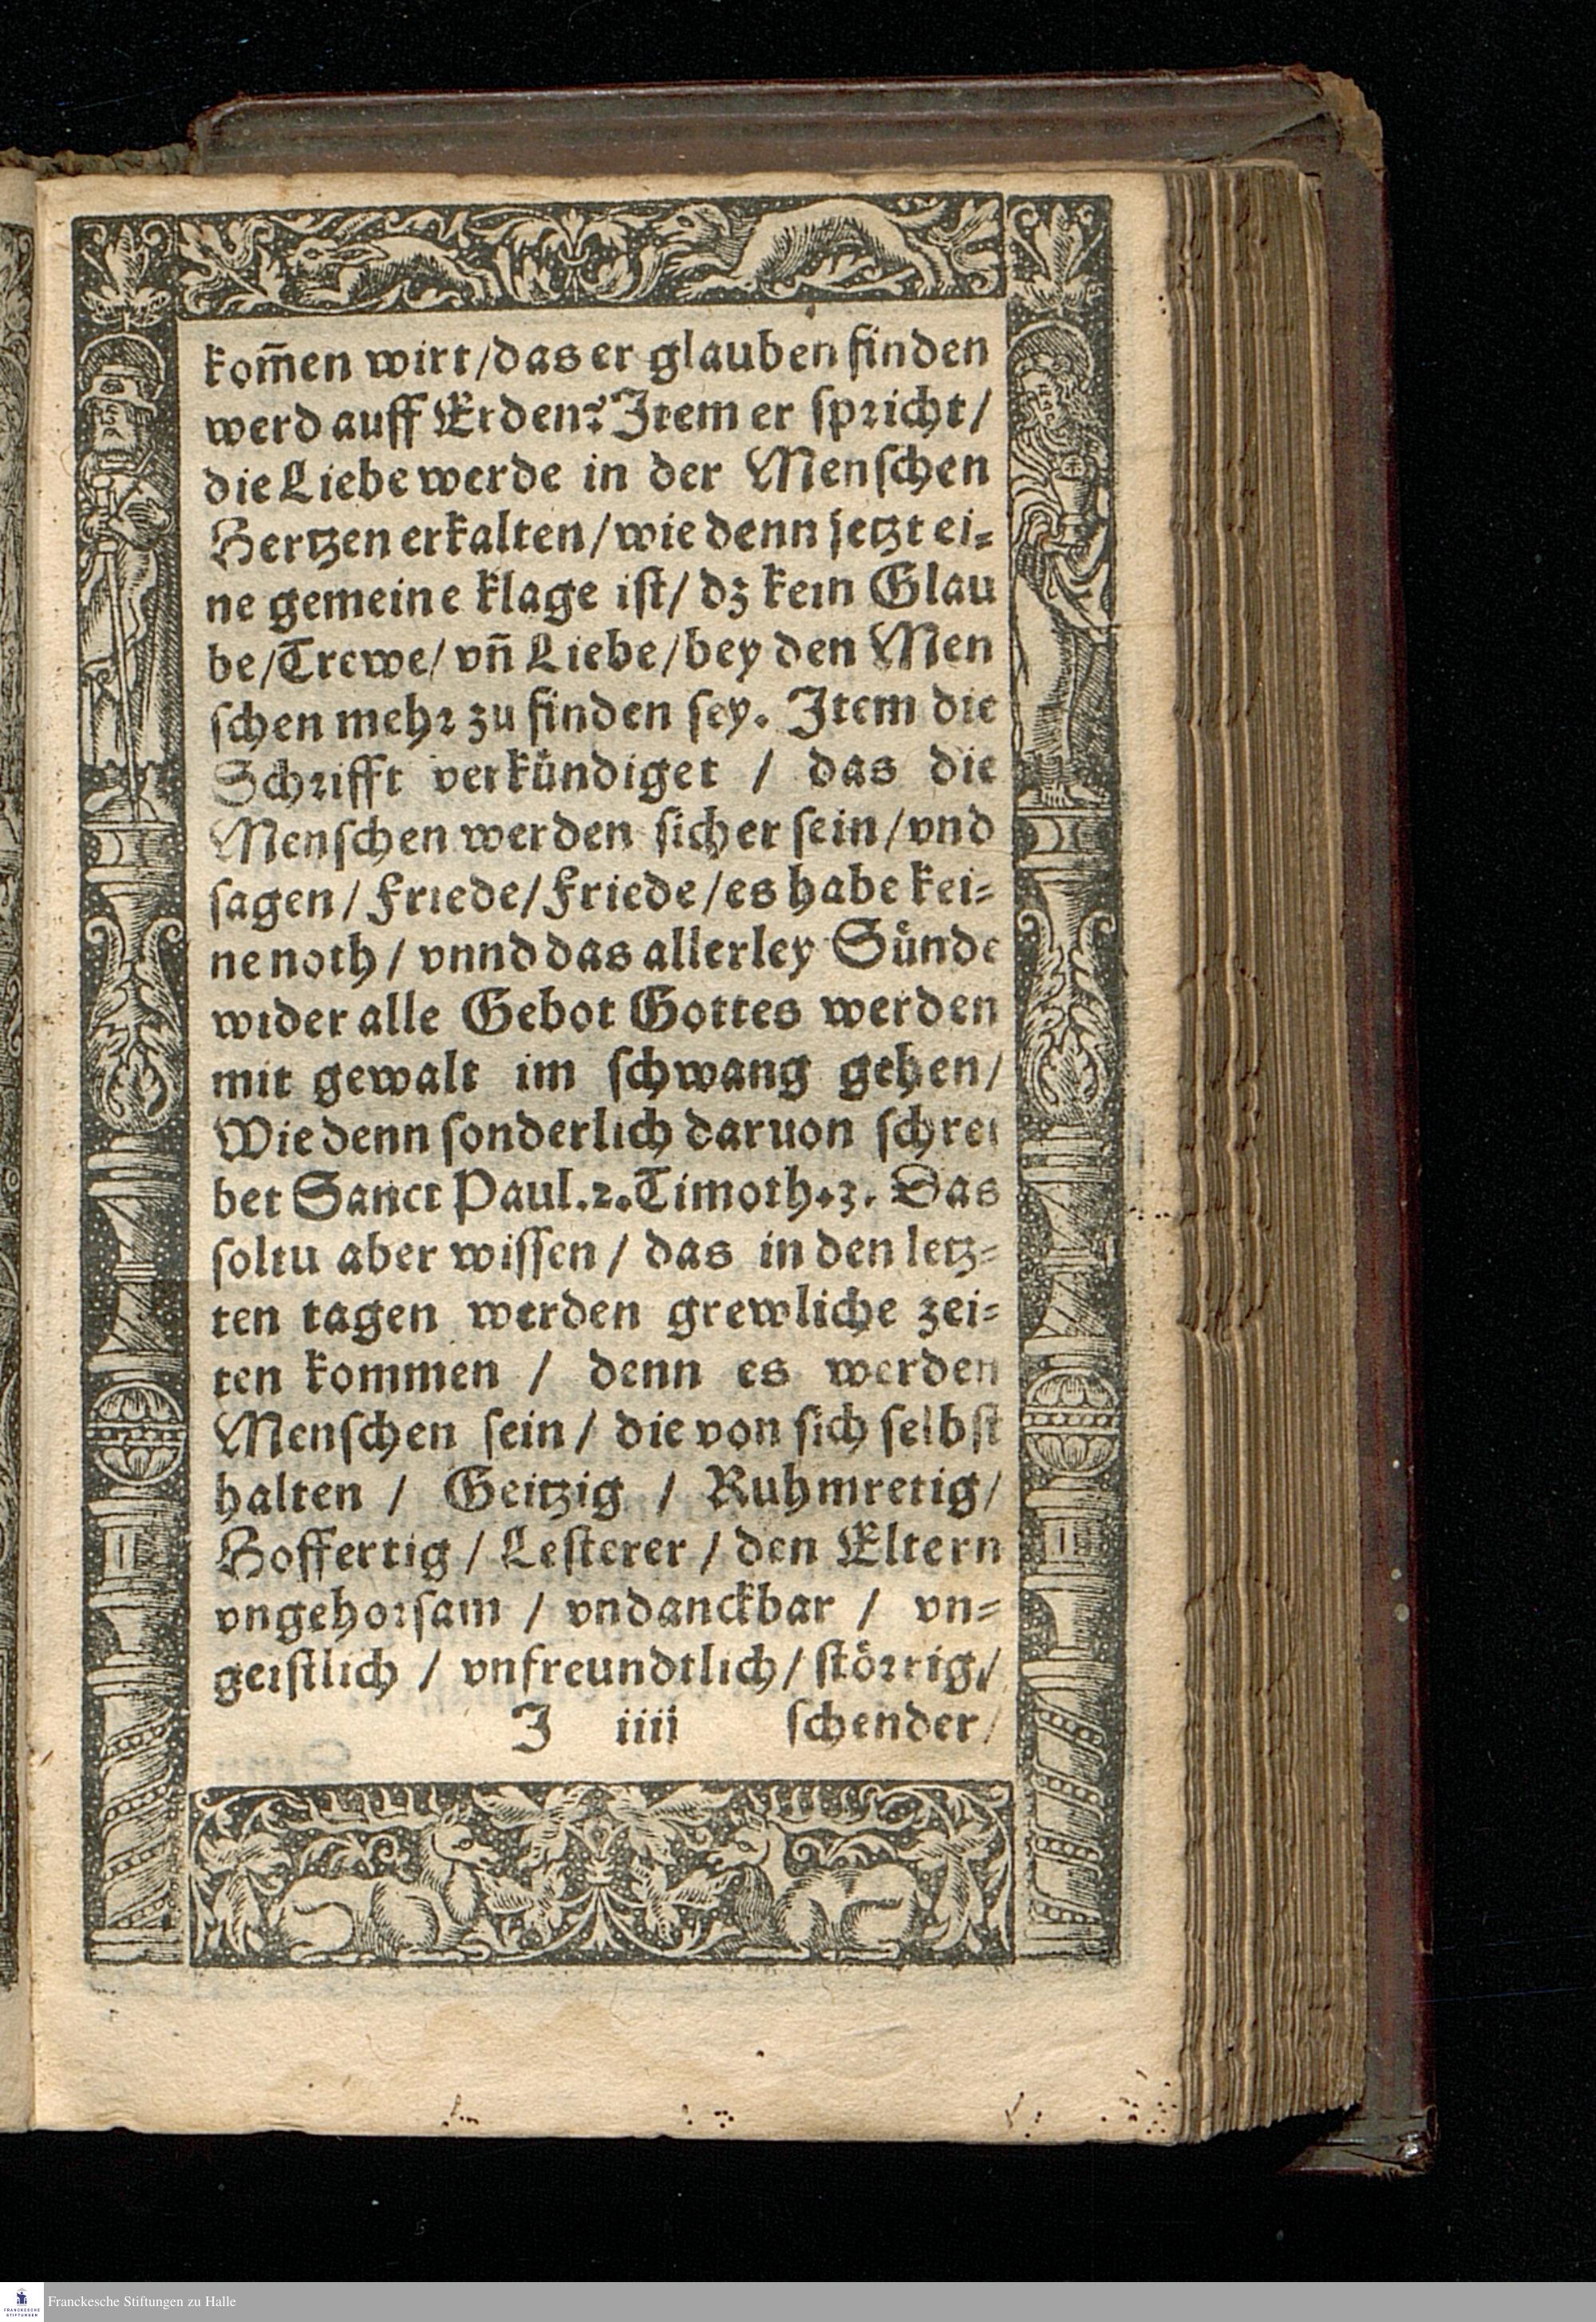 kom̃en wirt/das er glauben finden
werd auff Erden? Item er spꝛicht/
die Liebe werde in der Menschen
Hertzen erkalten/wie denn jetzt ei⸗
ne gemeine klage ist/ dz kein Glau
be/Trewe/ vñ Liebe/bey den Men
schen mehꝛ zu finden sey. Item die
Schꝛifft verkündiget / das die
Menschen werden sicher sein/vnd
sagen/ Friede/Friede/es habe kei⸗
ne noth/ vnnd das allerley Sünde
wider alle Gebot Gottes werden
mit gewalt im schwang gehen/
Wie denn sonderlich daruon schrei
bet Sanct Paul.2.Timoth.3. Das
soltu aber wissen / das in den letz⸗
ten tagen werden grewliche zei⸗
ten kommen / denn es werden
Menschen sein/ die von sich selbst
halten / Geitzig / Ruhmretig/
Hoffertig / Lesterer / den Eltern
vngehoꝛsam / vndanckbar / vn⸗
geistlich / vnfreundtlich/ stöꝛrig/
J iiii schender/
Franckesche Stiftungen zu Halle
FRANCKESCHE
STIFTUNGEN